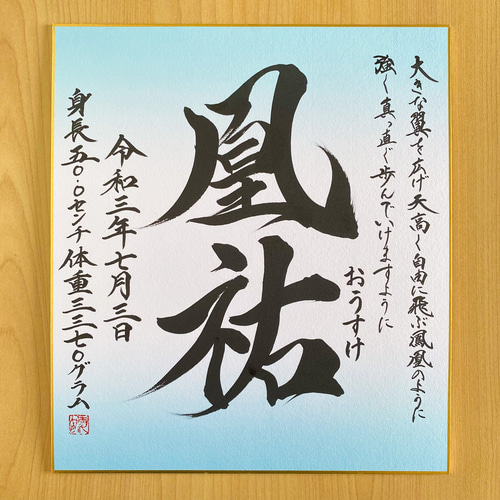 大きな翼を広げ天高く自由に飛ぶ鳳凰のように
強く真っ直ぐ歩んでいけますように
凰祐
おうすけ
令和三年七月三日
身長五〇.〇センチ体重三三七〇グラム